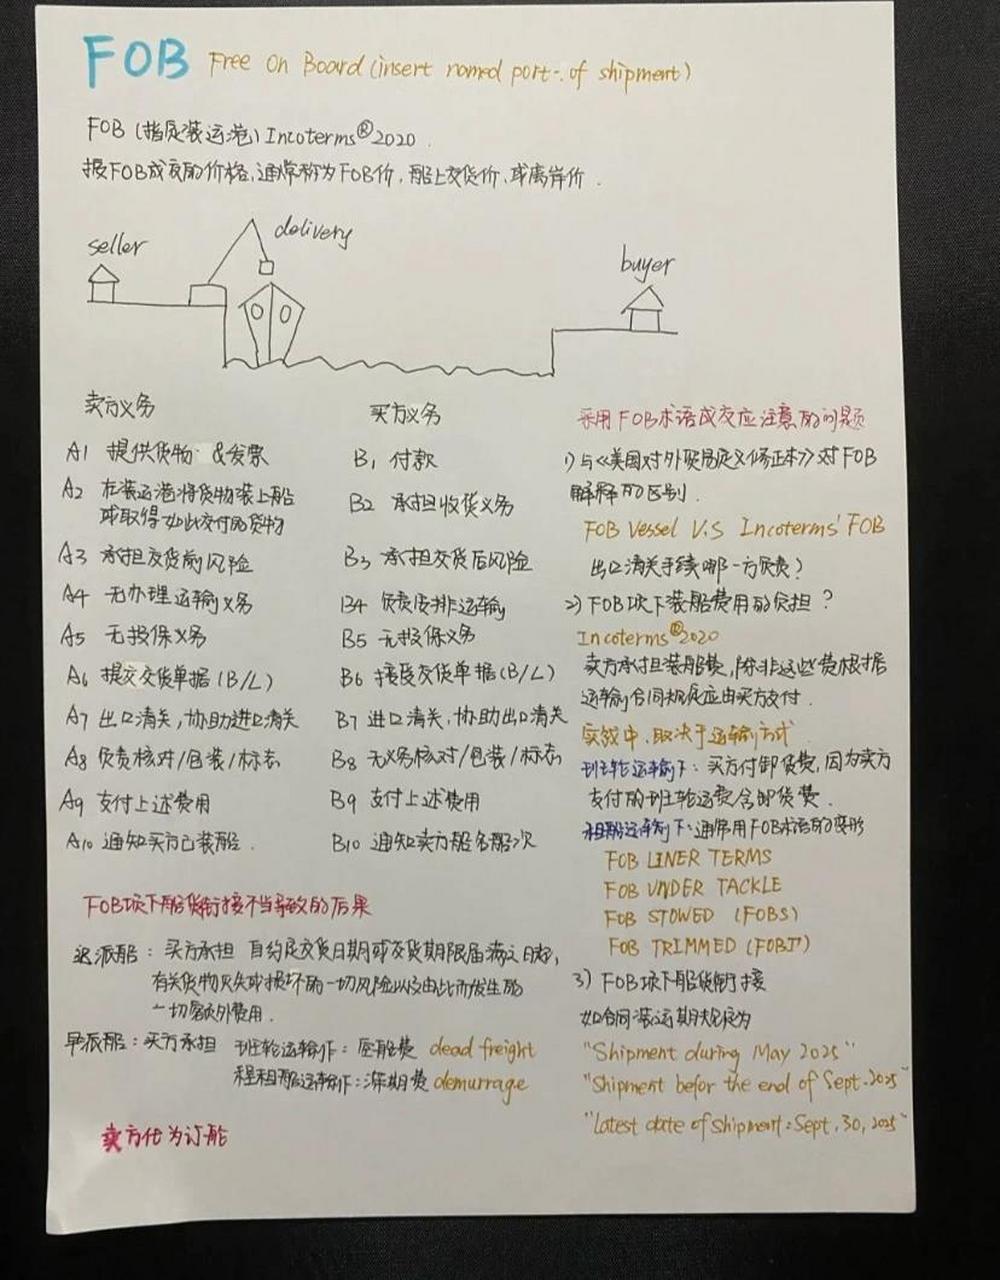 FOB Free On Board (insert named port of shipment)
FOB (指定装运港) Incoterms®2020.
按FOB成交的价格,通常称为FOB价,船上交货价,或离岸价.
seller
delivery
buyer
卖方义务
A1 提供货物 &发票
A2 在装运港将货物装上船
或取得如此交付的货物
A3 承担交货前风险
A4 无办理运输义务
A5 无投保义务
A6 提交交货单据(B/L)
A7 出口清关,协助进口清关
A8 负责核对/包装/标志
A9 支付上述费用
A10 通知买方已装船.
买方义务
B1 付款
B2 承担收货义务
B3 承担交货后风险
B4 负责安排运输
B5 无投保义务
B6 接受交货单据(B/L)
B7 进口清关,协助出口清关
B8 无义务核对/包装/标志
B9 支付上述费用
B10 通知卖方船名船次
采用FOB术语成交应注意的问题
1)与《美国对外贸易定义修正本》对FOB
解释的区别.
FOB Vessel V.S Incoterms' FOB
出口清关手续哪一方负责?
2)FOB项下装船费用的负担?
Incoterms®2020
卖方承担装船费,除非这些费根据
运输合同规定应由买方支付.
实务中,取决于运输方式
班轮运输下:买方付卸货费,因为卖方
支付的班轮运费含卸货费.
租船运输下:通常用FOB术语的变形
FOB LINER TERMS
FOB UNDER TACKLE
FOB STOWED (FOBS)
FOB TRIMMED (FOBT)
3) FOB项下船货衔接
如合同装运期规定为
"Shipment during May 2025"
"Shipment befor the end of Sept. 2025"
"Latest date of shipment: Sept. 30, 2025"
FOB项下船货衔接不当导致的后果
迟派船:买方承担 自约定交货日期或交货期限届满之日起,
有关货物灭失或损坏的一切风险以及由此而发生的
一切额外费用.
早派船:买方承担 班轮运输下:空舱费 dead freight
程租船运输下:滞期费 demurrage
卖方代为订船